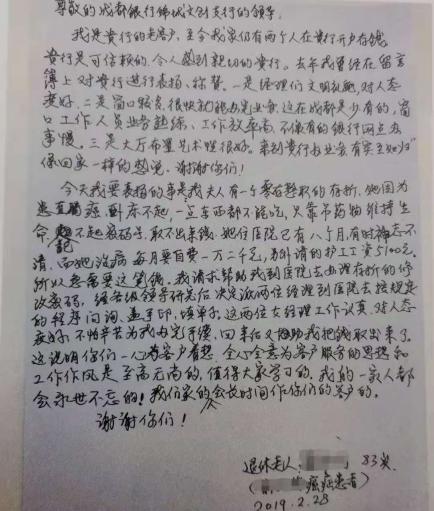 尊敬的成都银行锦城文创支行的领导:
我是贵行的老客户,至今我家仍有两个人在贵行开户存钱
贵行是可信赖的、令人感到亲切的贵行。去年我曾经在留言
簿上对贵行进行表扬、称赞。一是经理们文明礼貌,对人态
度好,二是窗口较多,很快就能办完业务,这在成都是少有的,窗
口工作人员业务熟练、工作效率高,不像有的银行网点办
事慢。三是大厅布置艺术性很好。来到贵行办业务有宾至如归
保回家一样的感觉。谢谢你们!
今天我要表扬的事是我夫人有一个零存整取的存折,她因为
患直肠癌,卧床不起,一点东西都不能吃,只靠吊药物维持生
命,记不起密码了,取不出来钱。她住医院已有八个月,有时神志不
清,而她治病每月要自费一万二千元,另外请的护工工资5100元。
所以急需要这笔钱。我请求帮助我到医院去办理存折的修
改密码,经各级领导研究后决定派两位经理到医院去按规定
的程序问询、盖手印,填单子。这两位女经理工作认真,对人态
度好,不怕辛苦为我办完手续,回来后又协助我把钱取出来了。
这说明你们一心为客户着想,全心全意为客户服务的思想和
工作作风是至高无尚的,值得大家学习的,我的一家人都
会永世不忘的!我们家的会长时间作你们的客户的。
谢谢你们!
退休老人: 83岁
癌症患者)
2019.2.28